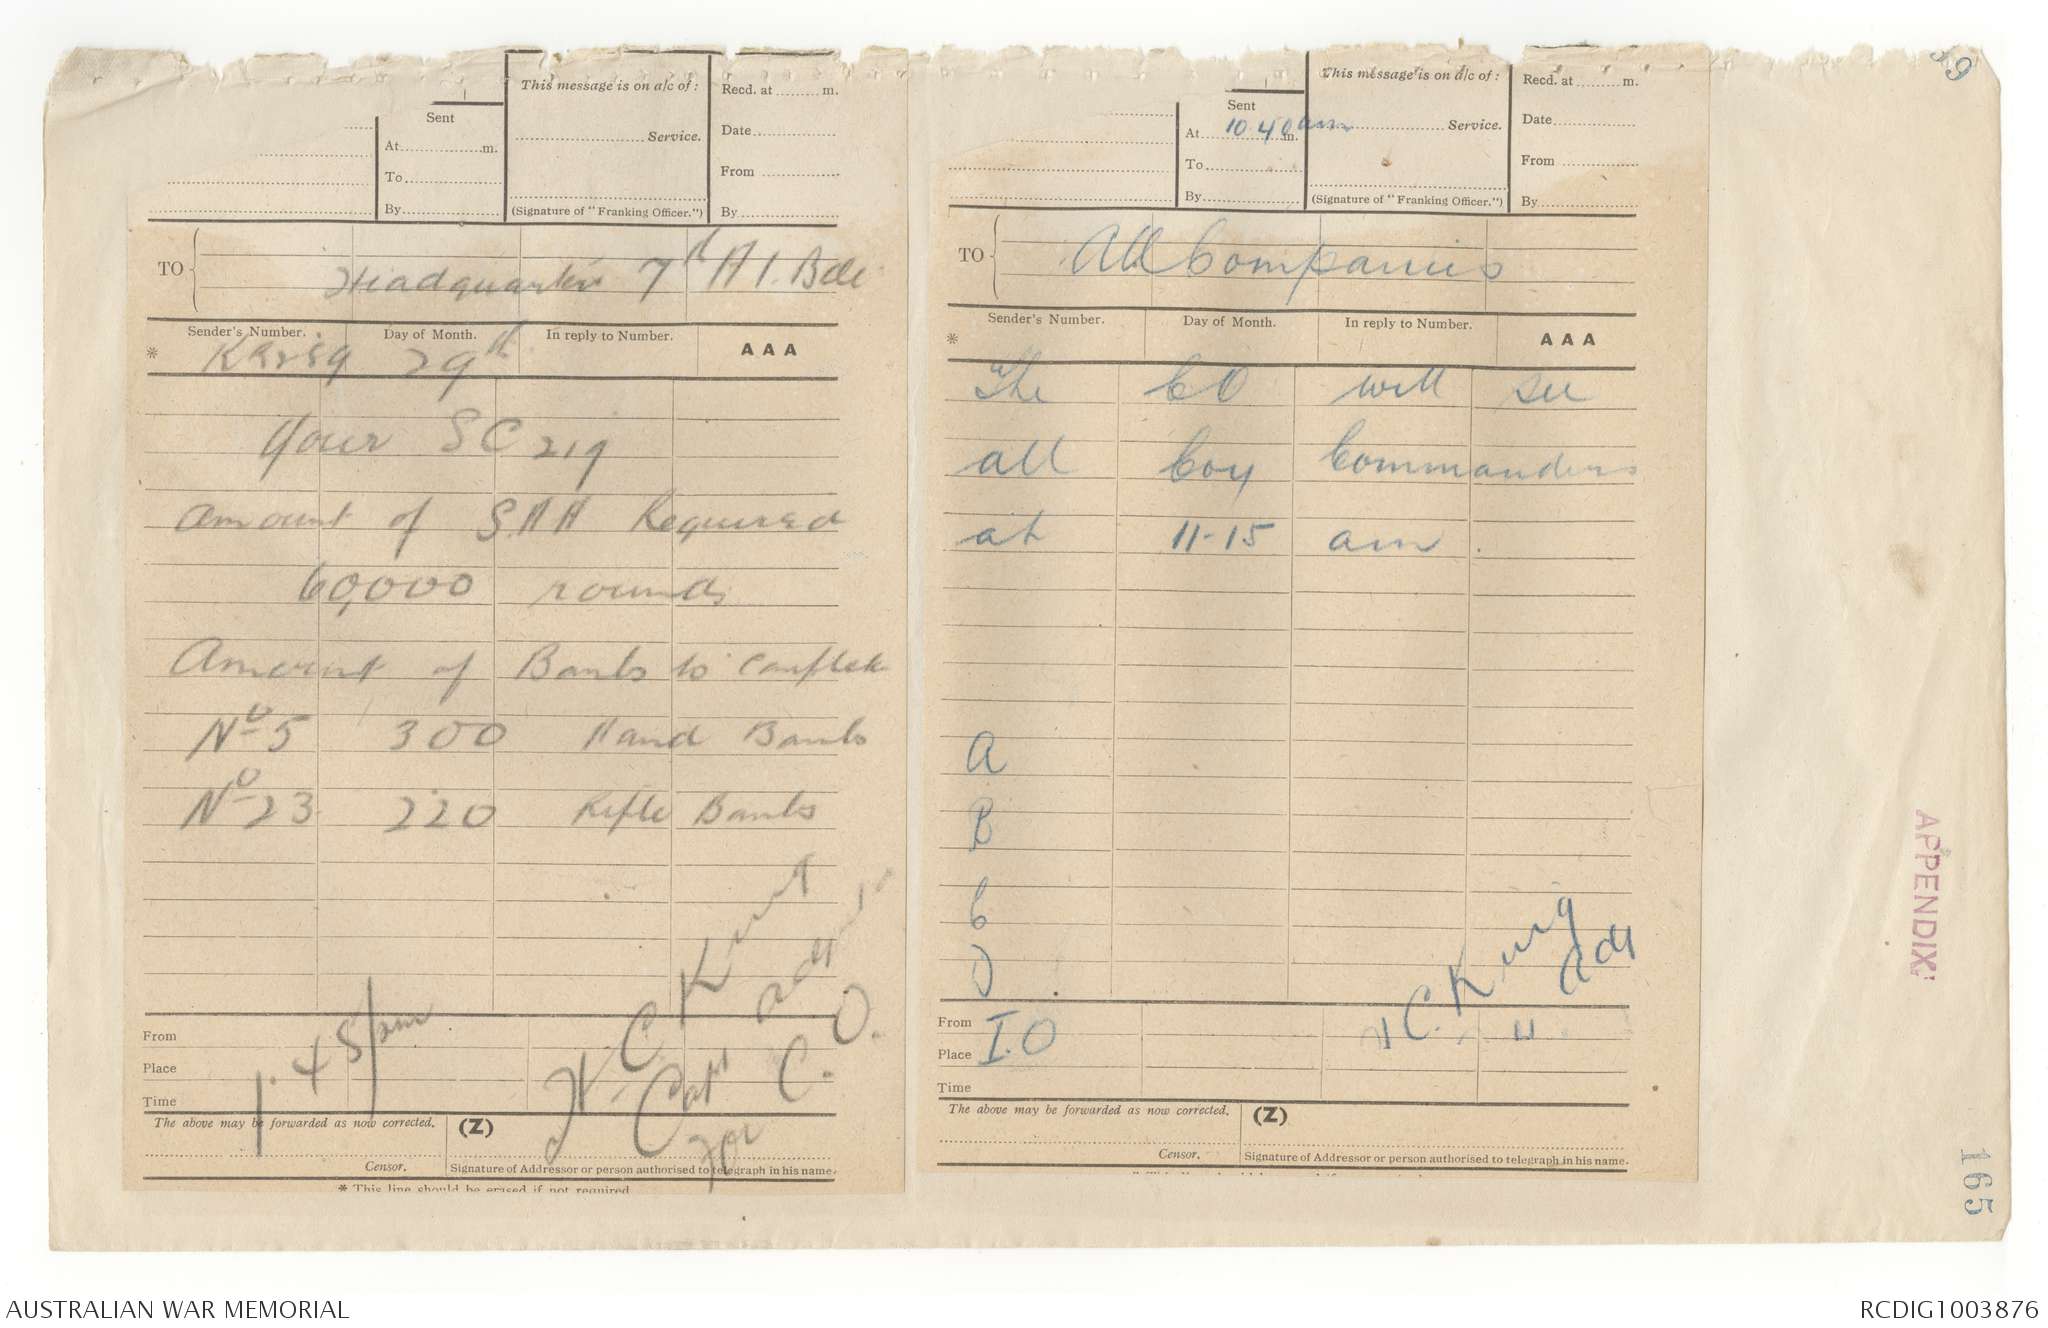 Sent
At.........m.
To
By
This message is on a/c of :
Service.
(Signature of "Franking Officer.")
Recd. at ........ m.
Date
From
By
TO
Headquarters 7th A I. Bde
Sender's Number.
Day of Month.
In reply to Number.
AAA
*
29th
Your SC 219
Amount of S.A.A Required
60,000 rounds
Amount of Bombs to Complete
No 5 300 Hand Bombs
No 23 220 Rifle Bombs
From
Place
Time
1.45 pm
H. C. King
Capt Adjt
for C.O.
The above may be forwarded as now corrected.
(Z)
Censor.
Signature of Addressor or person authorised to telegraph in his name.
* This line should be erased if not required
Sent
At 10.40am m.
To
By
This message is on a/c of :
Service.
(Signature of "Franking Officer.")
Recd. at ........ m.
Date
From
By
TO
All Companies
Sender's Number.
Day of Month.
In reply to Number.
AAA
*
The CO will see
all Coy Commanders
at 11-15 am.
A
B
C
D
I.O
From
Place
Time
H C. King
Adjt
The above may be forwarded as now corrected.
(Z)
Censor.
Signature of Addressor or person authorised to telegraph in his name.
APPENDIX
165
AUSTRALIAN WAR MEMORIAL
RCDIG1003876